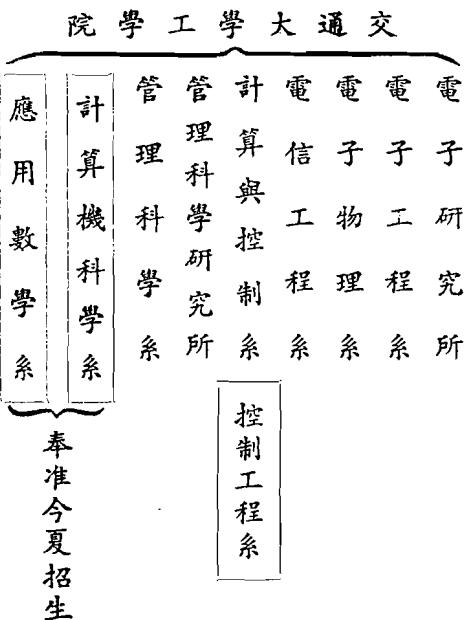 交通大學工學院
電子研究所
電子工程系
電子物理系
電信工程系
計算與控制系
控制工程系
管理科學研究所
管理科學系
計算機科學系
應用數學系
奉准今夏招生